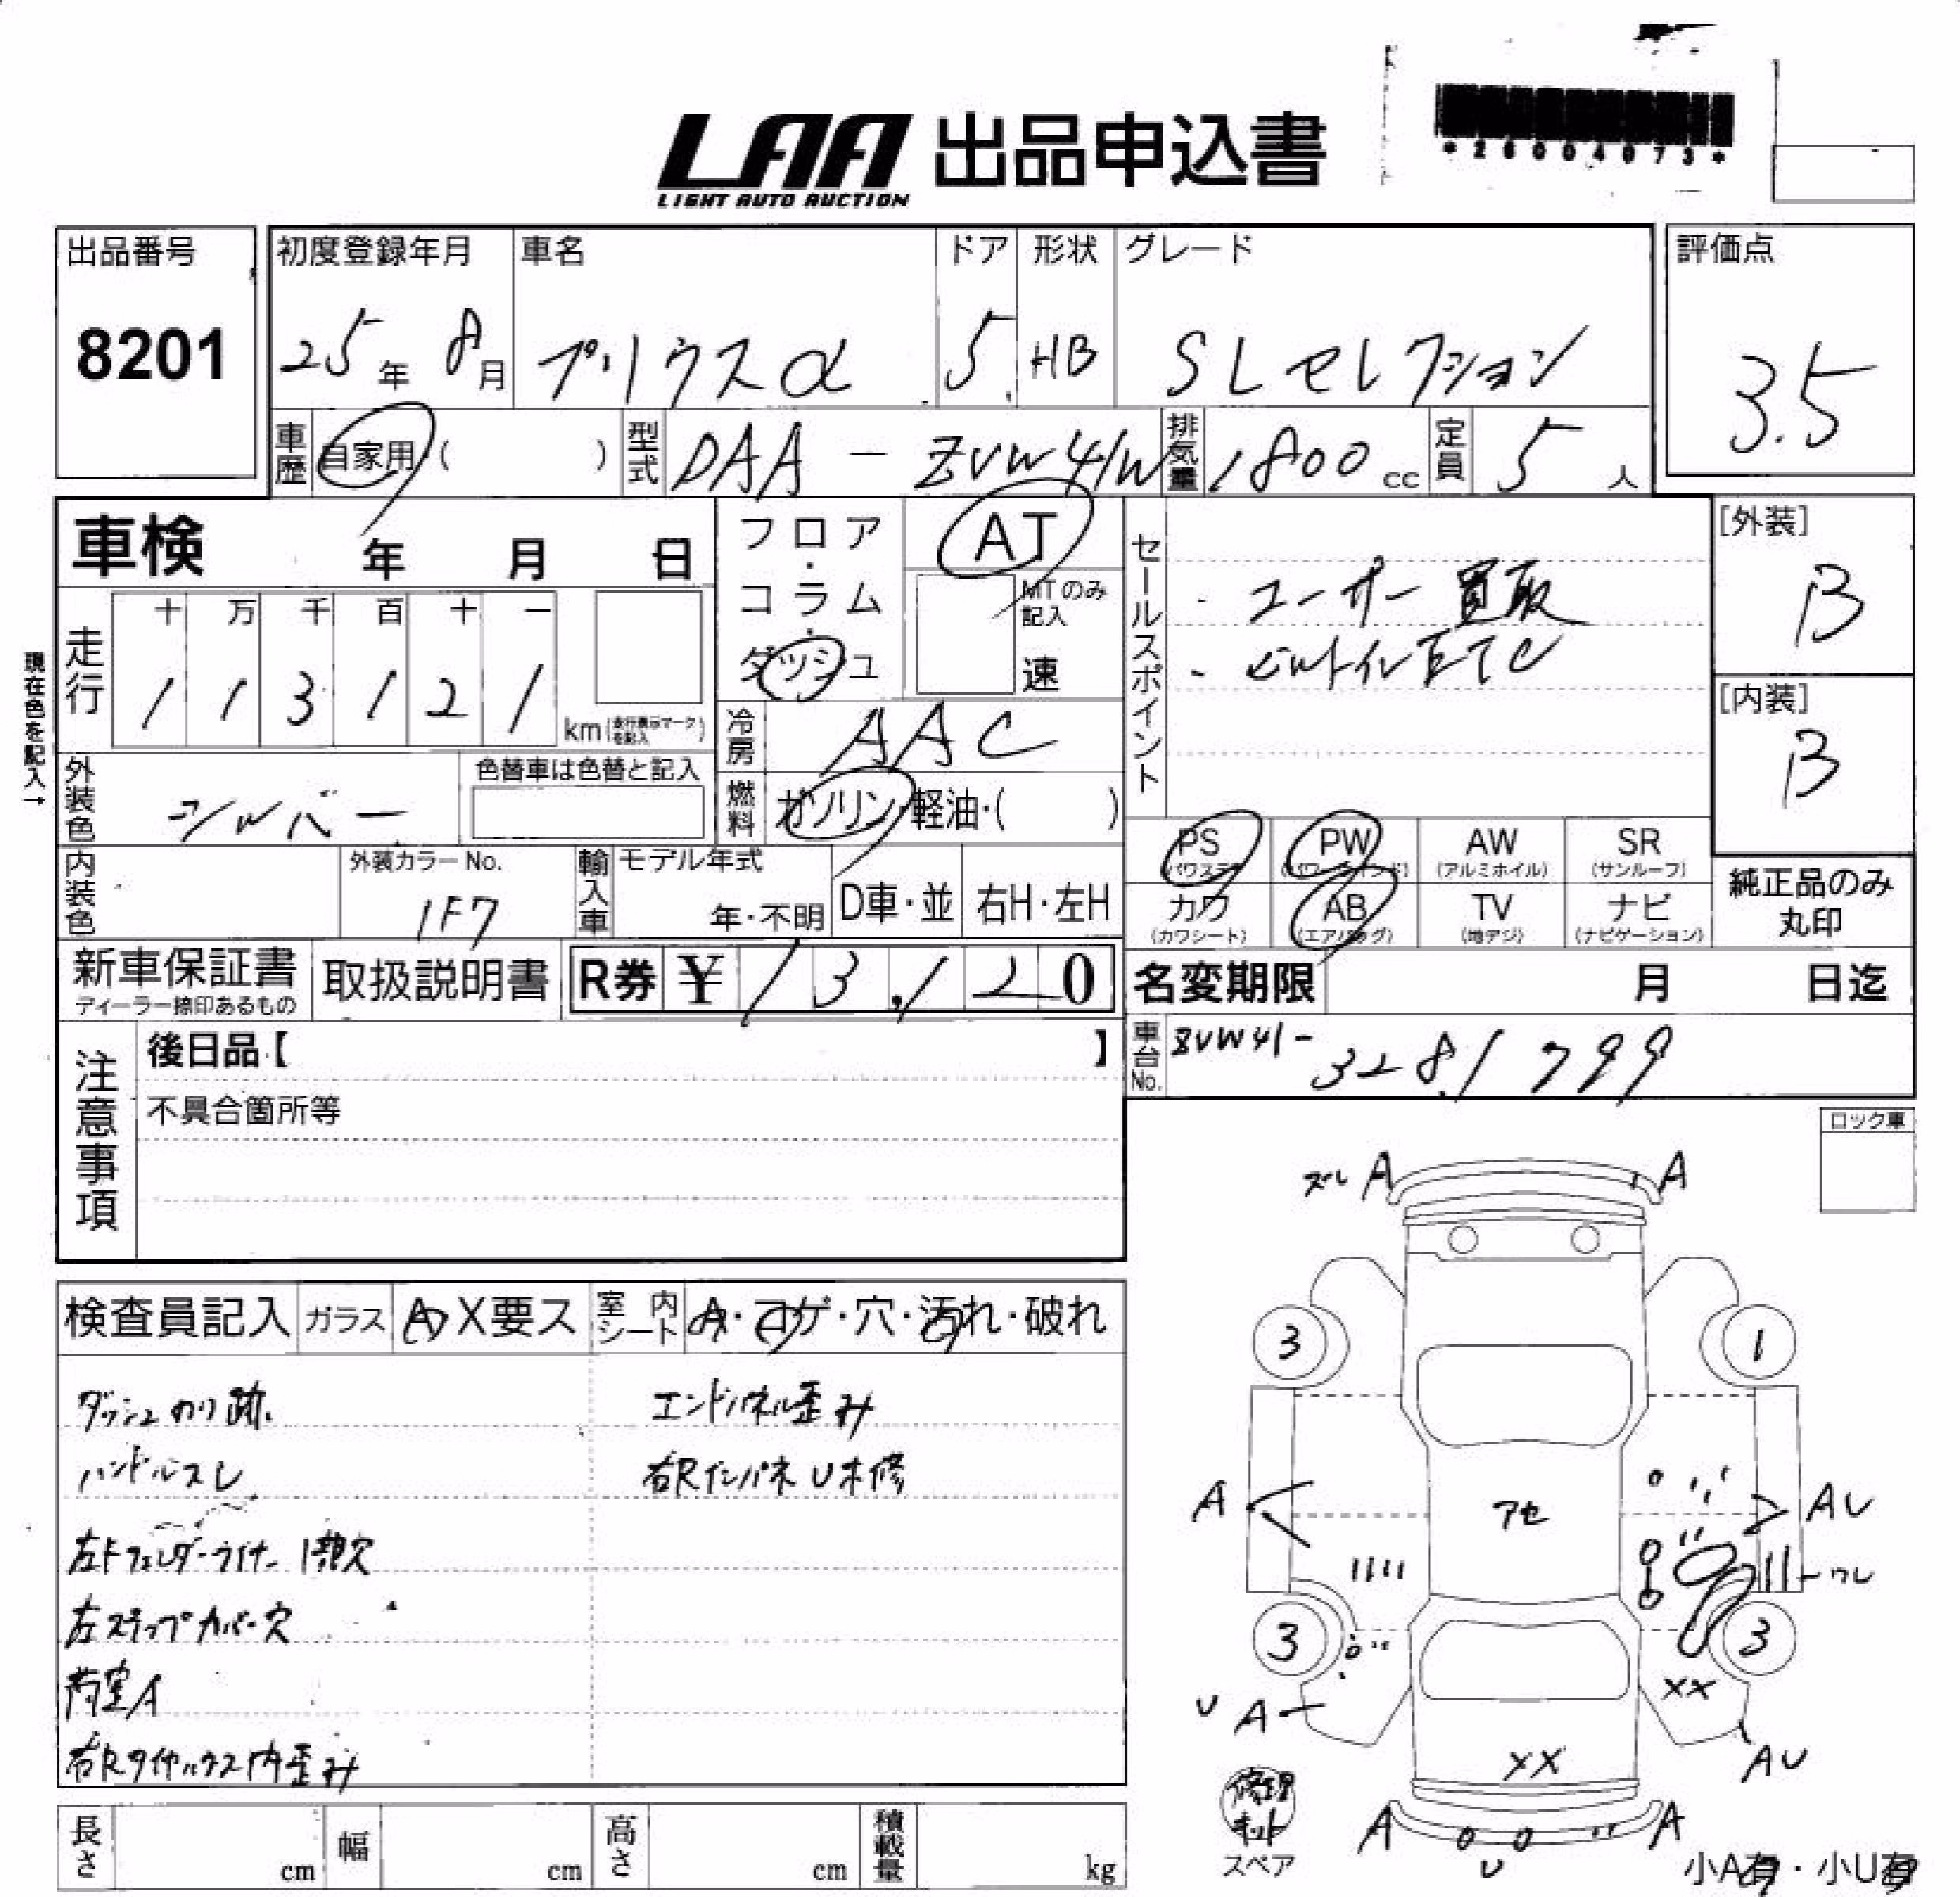 LAA 出品申込書
LIGHT AUTO AUCTION
*26004073*
出品番号
8201
初度登録年月
25年 8月
車名
プリウスα
ドア
5
形状
HB
グレード
SLセレクション
評価点
3.5
車歴
自家用 ( )
型式
DAA-ZVW41W
排気量
1800 cc
定員
5 人
車検 年 月 日
フロア・コラム・ダッシュ
AT
MTのみ記入
速
セールスポイント
・ユーザー買取
・ビルトインETC
[外装]
B
[内装]
B
現在色を記入→
走行
十 万 千 百 十 一
1 1 3 1 2 1
km (走行表示マークを記入)
冷房
AAC
外装色
シルバー
色替車は色替と記入
燃料
ガソリン・軽油・( )
PS (パワステ)
PW (パワーウインド)
AW (アルミホイル)
SR (サンルーフ)
カワ (カワシート)
AB (エアバッグ)
TV (地デジ)
ナビ (ナビゲーション)
純正品のみ
丸印
内装色
外装カラーNo.
1F7
輸入車
モデル年式
年・不明
D車・並
右H・左H
新車保証書
ディーラー捺印あるもの
取扱説明書
R券 ¥ 13,120
名変期限 月 日迄
車台No.
ZVW41-3281799
注意事項
後日品【 】
不具合箇所等
ロック車
検査員記入
ガラス
A X要ス
室内シート
A・コゲ・穴・汚れ・破れ
ダッシュのり跡
ハンドルスレ
左Fフェンダーライナー1部欠
左ステップカバー穴
荷室A
右Rタイヤハウス内歪み
エンドパネル歪み
右RインパネU未修
ズレ A
A
3
1
A
アセ
AU
ワレ
3
3
U A
XX
XX
AU
A
U
A
修理キット
スペア
小A有・小U有
長さ cm
幅 cm
高さ cm
積載量 kg